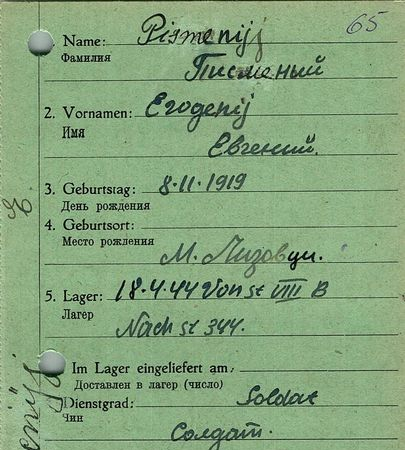 65
1. Name: Pismenij
Фамилия Писменый
2. Vornamen: Evgenij
Имя Евгений.
3. Geburtstag: 8.11.1919
День рождения
4. Geburtsort:
Место рождения
М.
5. Lager: 18.4.44 Von st VIII B
Лагер
Nach st 344.
Im Lager eingeliefert am
Доставлен в лагер (число)
Dienstgrad: Soldat
Чин
Солдат.